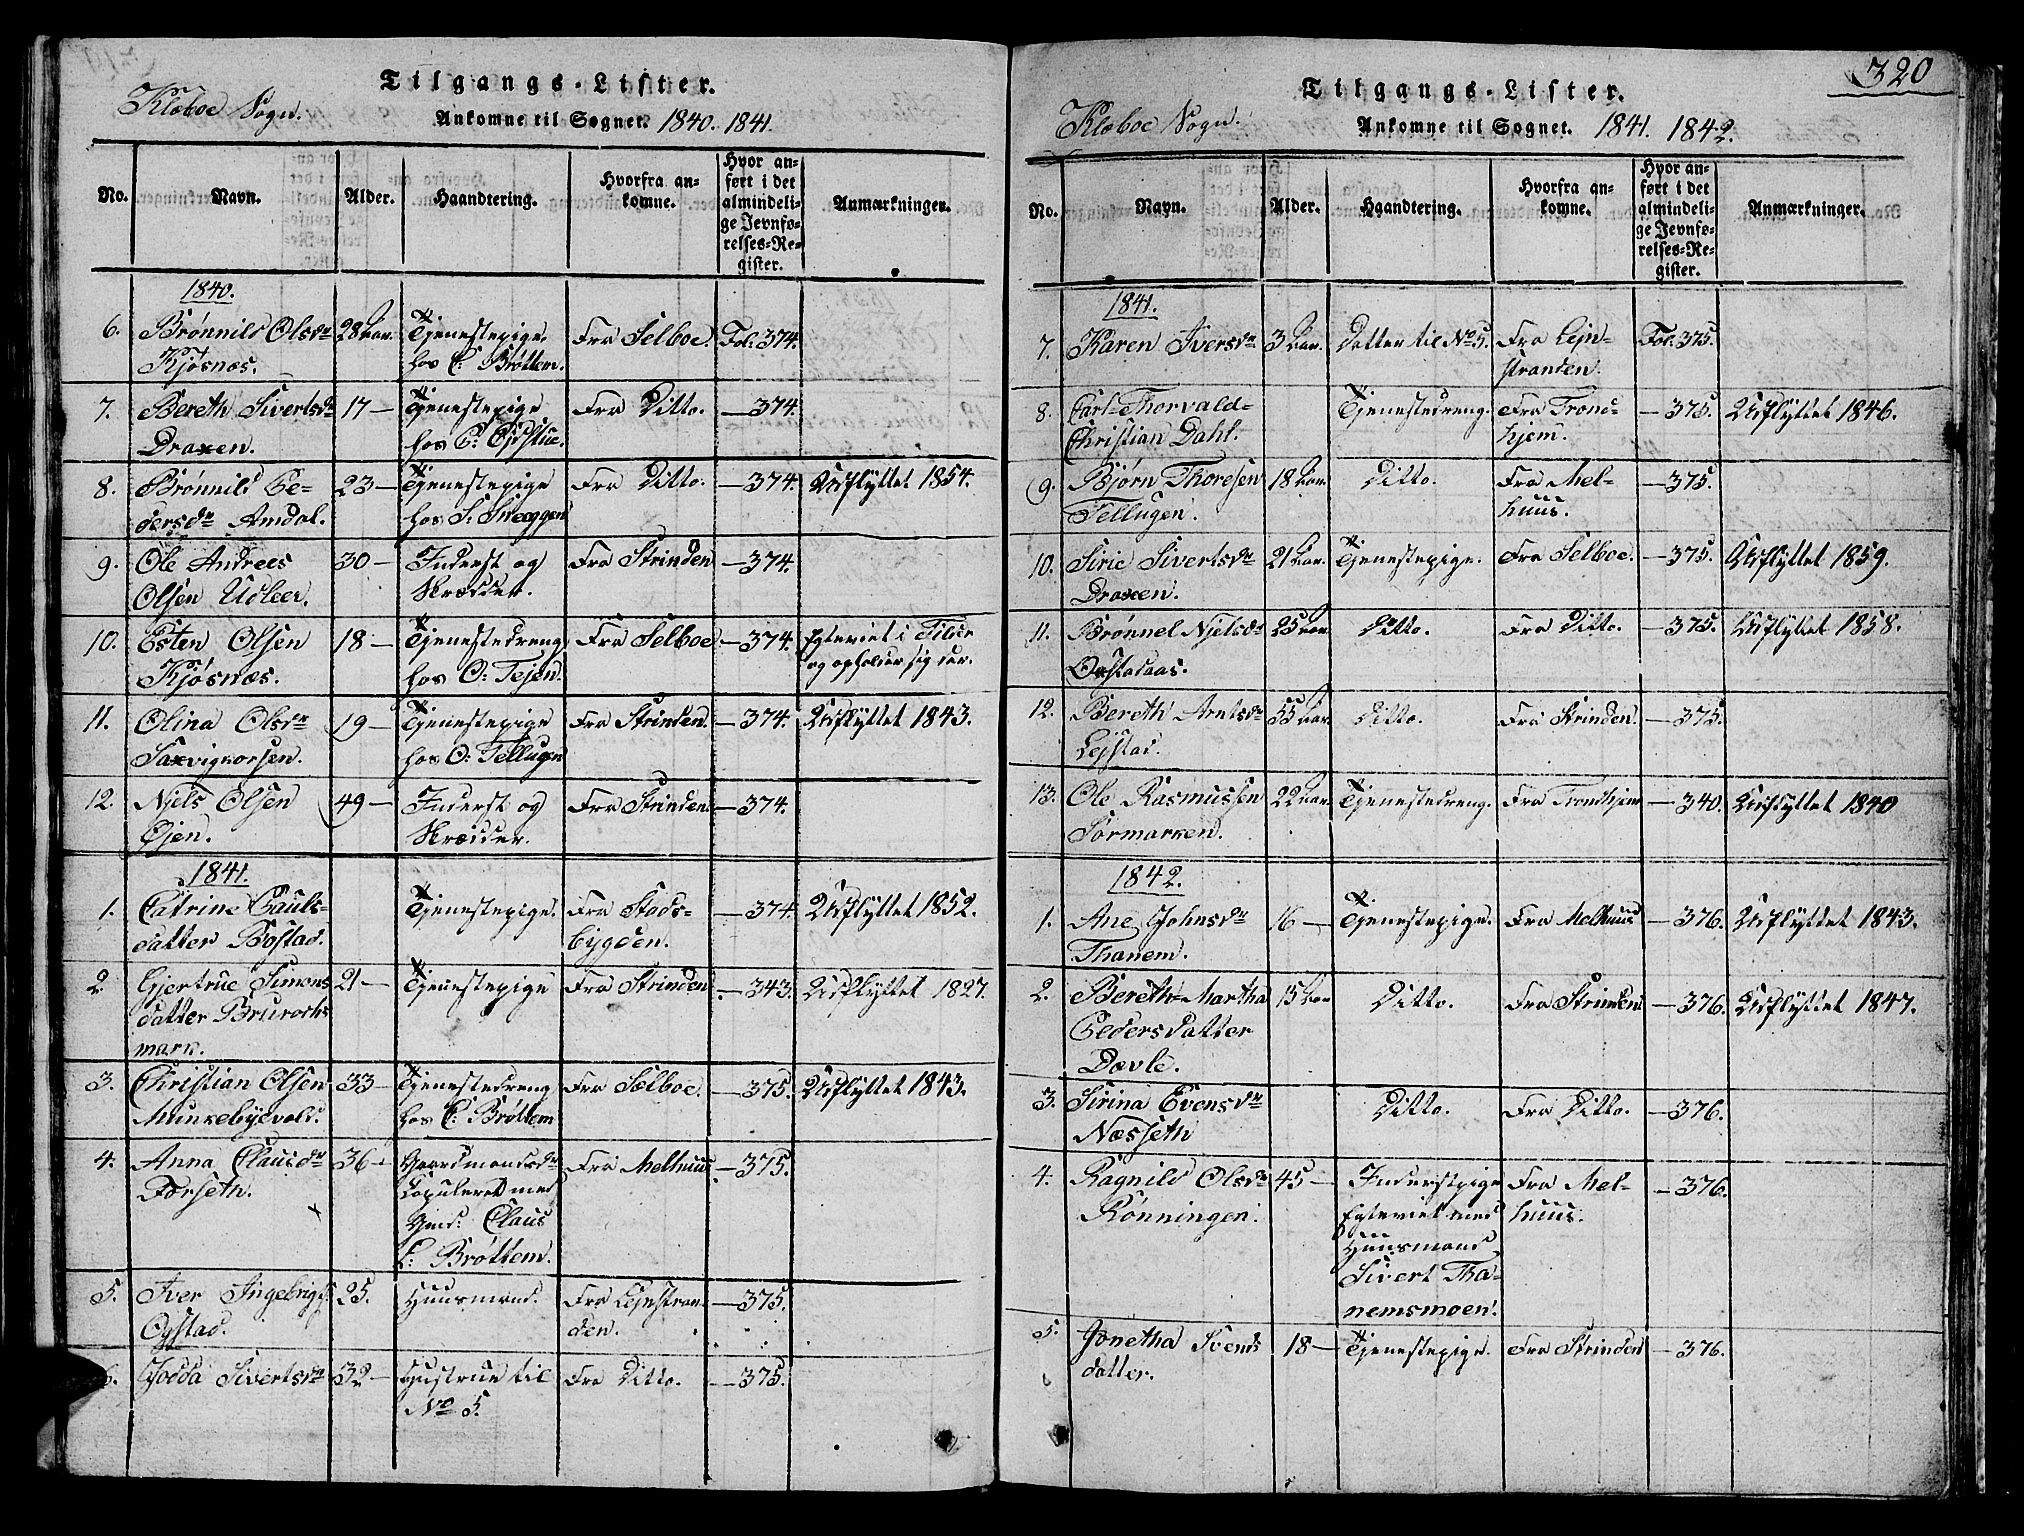 Tilgangs-Lister.
Klæboe Sogn.
Ankomne til Sognet. 1840. 1841.
No. Navn. Alder. Haandtering. Hvorfra ankomne. Hvor anført i det almindelige Jevnførelses-Register. Anmærkninger.
1840.
6. Brønnild Olsdr 28 Aar. Tjenestepige Fra Selboe. Fol. 374.
Kjøsnæs. hos E: Brøttem.
7. Bereth Sivertsdr 17 — Tjenestepige Fra Ditto. — 374.
Draxen. hos
8. Brønnild Pe- 23 — Tjenestepige Fra Ditto. — 374. Udflyttet 1854.
dersdr Amdal. hos
9. Ole Andreas 30 — Inderst og Fra Strinden — 374.
Olsen Udleer. Skrædder.
10. Esten Olsen 18 — Tjenestedreng Fra Selboe — 374. Egteviet i Tiller
Kjøsnæs. hos O: Tejen. og opholder sig der.
11. Olina Olsdr 19 — Tjenestepige Fra Strinden. — 374. Udflyttet 1843.
Saxvigvorsen. hos O: Tellugen
12. Njels Olsen 49 — Inderst og Fra Strinden — 374.
Øjen. Skrædder.
1841.
1. Catrine Pauls- Tjenestepige. Fra Stads- — 374. Udflyttet 1852.
datter Bostad. bygden.
2 Gjertrue Simons 21 — Tjenestepige Fra Strinden — 343. Udflyttet 1827.
datter
mark.
3. Christian Olsen 33 — Tjenestedreng Fra Sælboe. — 375. Udflyttet 1843.
Munkebyevold. hos E: Brøttem
4. Anna Clausdr 36 — Gaardmandsdr Fra Melhuus — 375.
Forseth. Copuleret med
Gmd: Claus
E: Brøttem.
5. Iver Ingebrigts. 25. Huusmand. Fra Lejnstran- — 375.
Øystad. den.
6. Goddá Sivertsdr 32 — Hustrue til Fra Ditto. — 375.
No 5.
320
Tilgangs-Lister.
Klæboe Sogn.
Ankomne til Sognet. 1841. 1842.
No. Navn. Alder. Haandtering. Hvorfra ankomne. Hvor anført i det almindelige Jevnførelses-Register. Anmærkninger.
1841.
7. Karen Iversdr 3 Aar. Datter til No 5. Fra Lejn- Fol. 375.
stranden.
8. Carl Thorvald- Tjenestedreng. Fra Trond- — 375. Udflyttet 1846.
Christian Dahl. hjem.
9. Bjørn Thoresen 18 Aar. Ditto. Fra Mel- — 375.
Tellugen. huus.
10. Sirie Sivertsdr 21 Aar. Tjenestepige. Fra Selboe. — 375. Udflyttet 1859.
Draxen.
11. Brønnel Njelsdr 25 Aar Ditto. Fra Ditto. — 375. Udflyttet 1858.
12. Bereth Arntsdr 55 Aar. Ditto. Fra Strinden. — 375.
Lejstad.
13. Ole Rasmussen 22 Aar. Tjenestedreng. Fra Trondhjem — 340. Udflyttet 1840
Sørmarken.
1842.
1. Ane Johnsdr 16 — Tjenestepige. Fra Melhuus — 376. Udflyttet 1843.
Thanem.
2. Bereth Martha 15 Aar Ditto. Fra Strinden — 376. Udflyttet 1847.
Pedersdatter
Døvle.
3. Sirina Evensdr Ditto. Fra Ditto. — 376.
Næsseth
4. Ragnild Olsdr 45 — Inderstpige Fra Mel- — 376.
Rønningen. Egteviet med huus.
Huusmand
Sivert Tha-
nemsmoen.
5. Jonetha Svends 18 — Tjenestepige. Fra Strinden — 376.
datter.